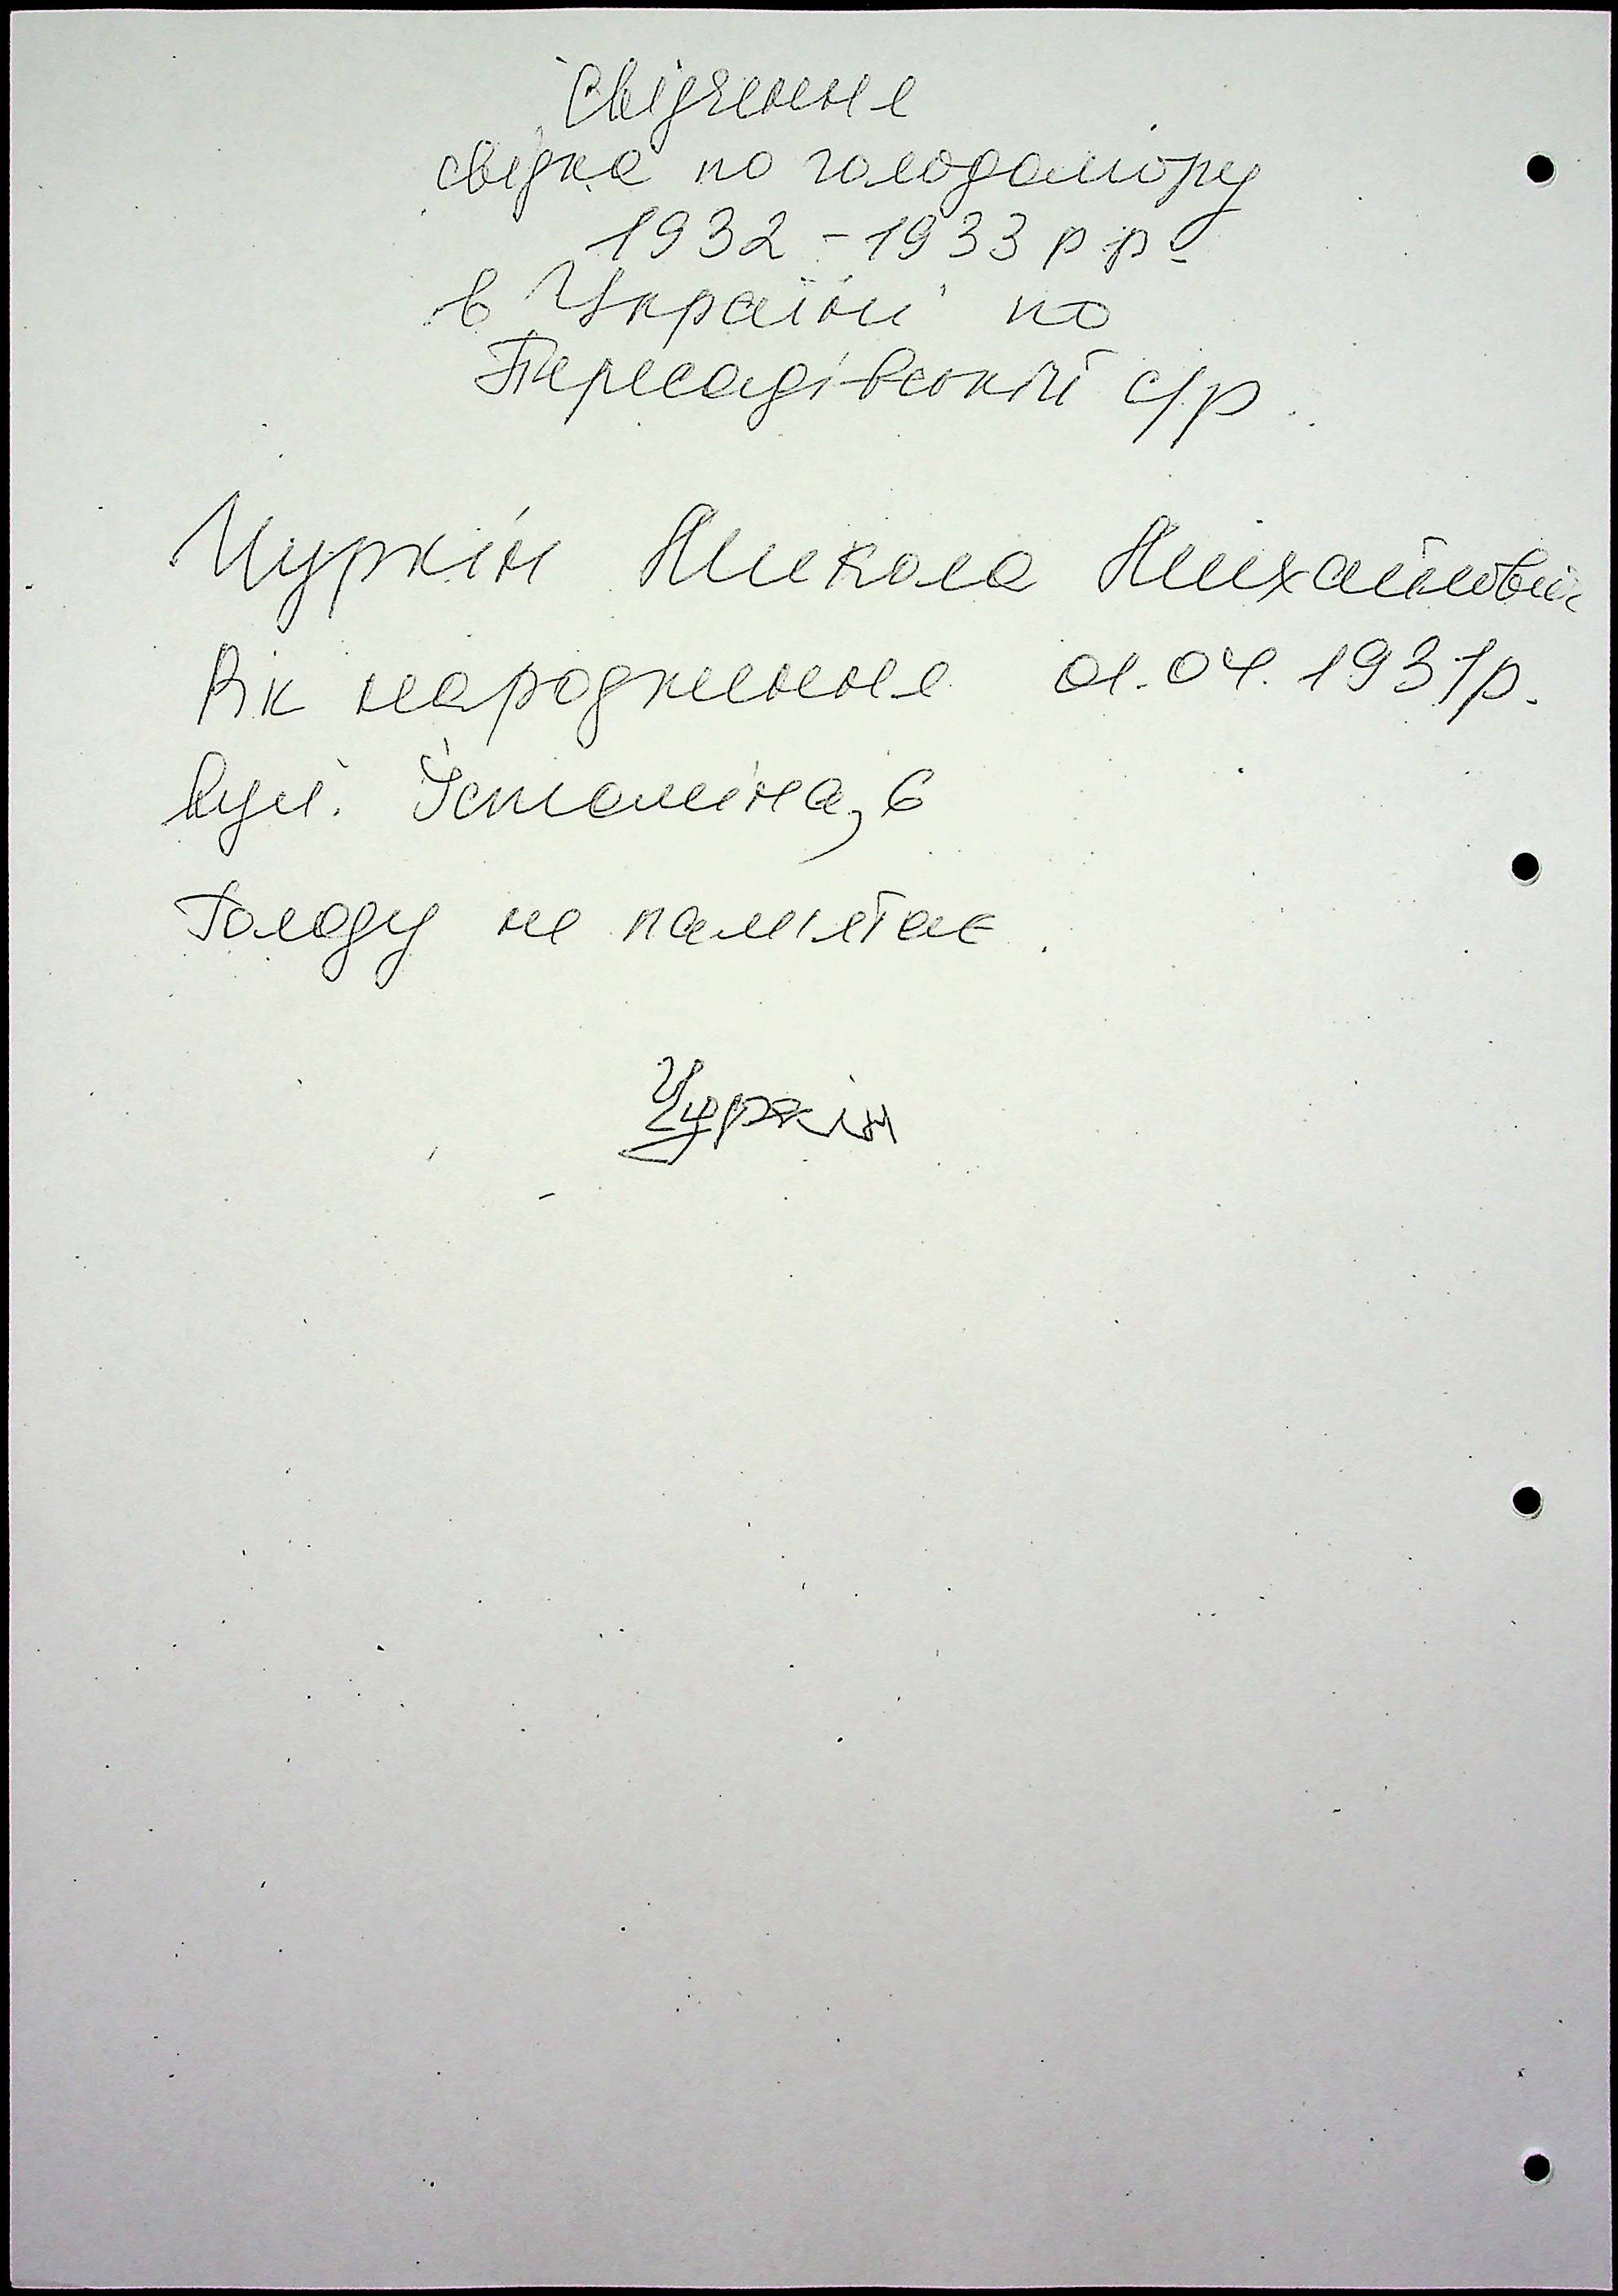 Свідчення
свідка по голодомору
1932-1933 р р.
в Україні по
Пересадівській с/р.
Чуркін Микола Михайлович
Рік народження 01.04.1931р.
вул. Істоміна, 6
Голоду не пам'ятає.
Чуркін